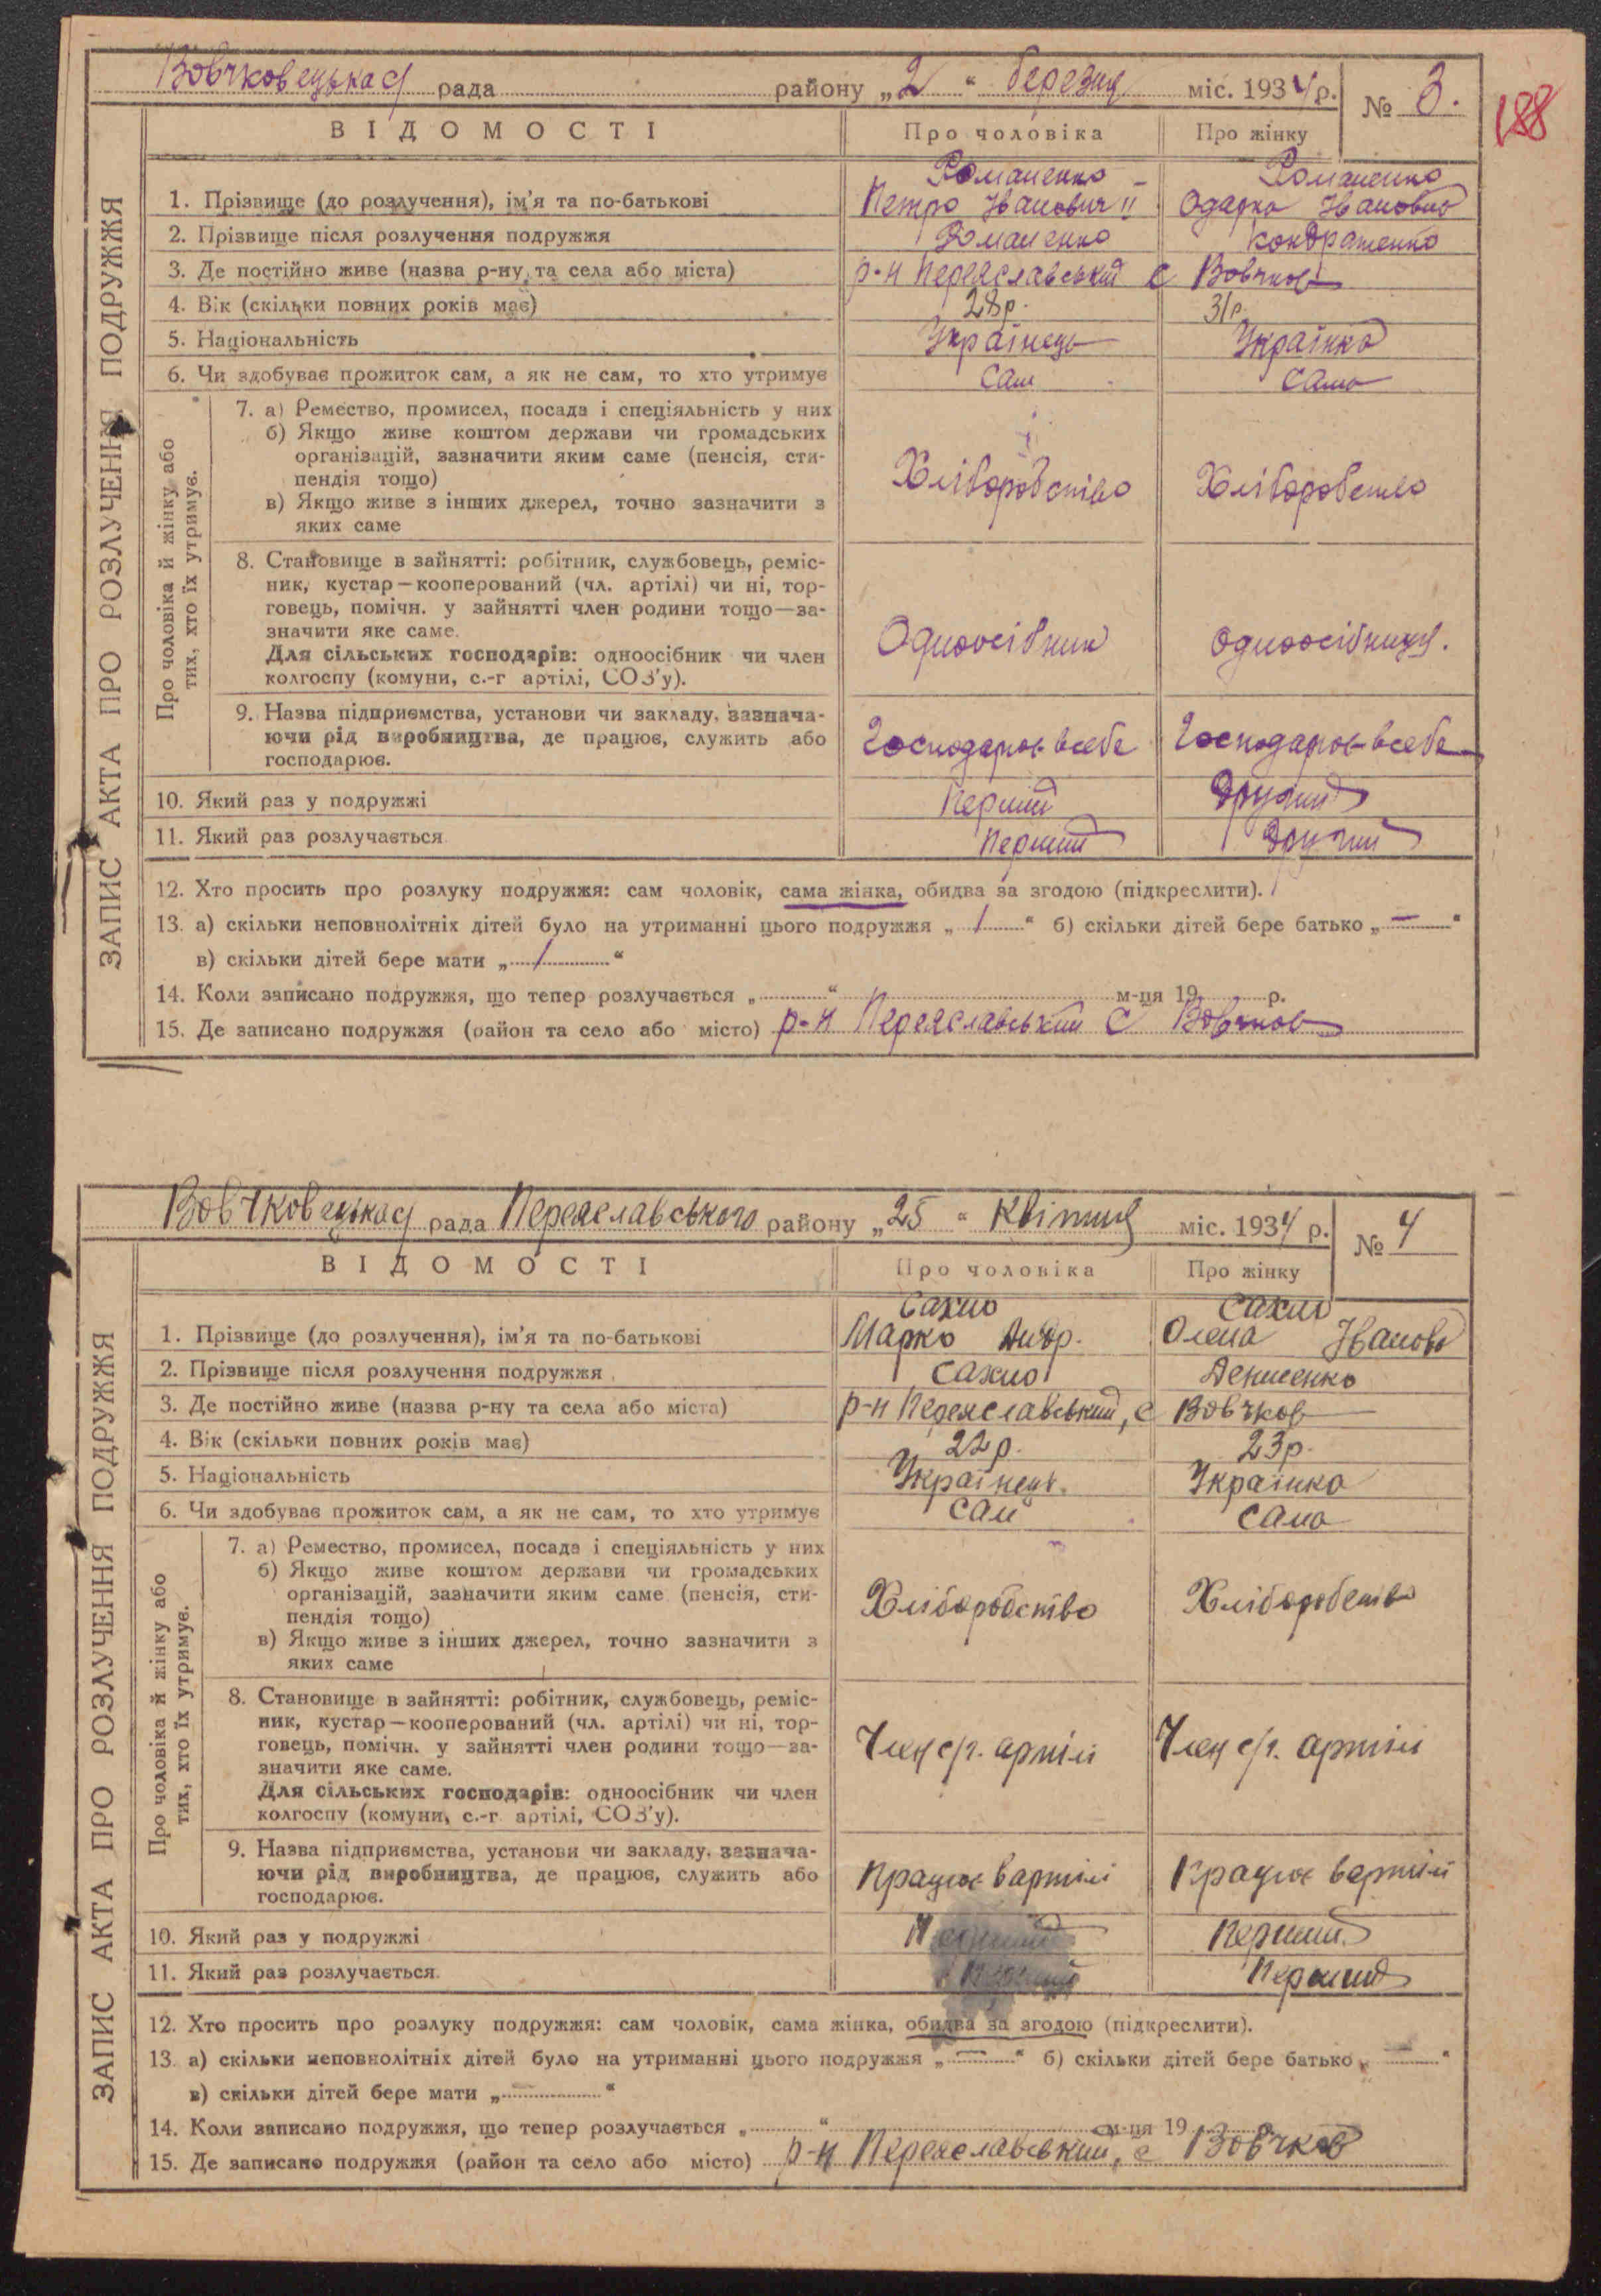 Вовчковецька рада району „2“ березня міс. 1934 р. № 3.
188
ВІДОМОСТІ Про чоловіка Про жінку
ЗАПИС АКТА ПРО РОЗЛУЧЕННЯ ПОДРУЖЖЯ
Романенко Романенко
1. Прізвище (до розлучення), ім'я та по-батькові Петро Іванович Одарка Івановна
2. Прізвище після розлучення подружжя Романенко Кондратенко
3. Де постійно живе (назва р-ну та села або міста) р-н Переяславський с Вовчков
4. Вік (скільки повних років має) 28р. 31р.
5. Національність Українець Українка
6. Чи здобуває прожиток сам, а як не сам, то хто утримує сам сама
Про чоловіка й жінку або
тих, хто їх утримує.
7. а) Ремество, промисел, посада і спеціяльність у них
б) Якщо живе коштом держави чи громадських
організацій, зазначити яким саме (пенсія, сти-
пендія тощо)
Хліборобство Хліборобство
в) Якщо живе з інших джерел, точно зазначити з
яких саме
8. Становище в зайнятті: робітник, службовець, реміс-
ник, кустар—кооперований (чл. артілі) чи ні, тор-
говець, помічн. у зайнятті член родини тощо—за-
значити яке саме.
Одноосібник Одноосібниця.
Для сільських господарів: одноосібник чи член
колгоспу (комуни, с.-г артілі, СОЗ'у).
9. Назва підприємства, установи чи закладу, зазнача-
ючи рід виробництва, де працює, служить або
господарює.
Господарює в себе Господарює в себе
10. Який раз у подружжі Перший Другий
11. Який раз розлучається Перший Другий
12. Хто просить про розлуку подружжя: сам чоловік, сама жінка, обидва за згодою (підкреслити).
13. а) скільки неповнолітніх дітей було на утриманні цього подружжя „1“ б) скільки дітей бере батько „—“
в) скільки дітей бере мати „1“
14. Коли записано подружжя, що тепер розлучається „ “ м-ця 19 р.
15. Де записано подружжя (район та село або місто) р-н Переяславський с Вовчков
Вовчковецька рада Переяславського району „25“ Квітня міс. 1934 р. № 4
ВІДОМОСТІ Про чоловіка Про жінку
ЗАПИС АКТА ПРО РОЗЛУЧЕННЯ ПОДРУЖЖЯ
Сахно Сахно
1. Прізвище (до розлучення), ім'я та по-батькові Марко Андр. Олена Іванова
2. Прізвище після розлучення подружжя Сахно Денисенко
3. Де постійно живе (назва р-ну та села або міста) р-н Переяславський, с Вовчков
4. Вік (скільки повних років має) 22р. 23р.
5. Національність Українець. Українка
6. Чи здобуває прожиток сам, а як не сам, то хто утримує сам сама
Про чоловіка й жінку або
тих, хто їх утримує.
7. а) Ремество, промисел, посада і спеціяльність у них
б) Якщо живе коштом держави чи громадських
організацій, зазначити яким саме (пенсія, сти-
пендія тощо)
Хліборобство Хліборобство
в) Якщо живе з інших джерел, точно зазначити з
яких саме
8. Становище в зайнятті: робітник, службовець, реміс-
ник, кустар—кооперований (чл. артілі) чи ні, тор-
говець, помічн. у зайнятті член родини тощо—за-
значити яке саме.
Член с/г. артілі Член с/г. артілі
Для сільських господарів: одноосібник чи член
колгоспу (комуни, с.-г артілі, СОЗ'у).
9. Назва підприємства, установи чи закладу, зазнача-
ючи рід виробництва, де працює, служить або
господарює.
Працює в артілі Працює в артілі
10. Який раз у подружжі Перший Перший
11. Який раз розлучається Перший Перший
12. Хто просить про розлуку подружжя: сам чоловік, сама жінка, обидва за згодою (підкреслити).
13. а) скільки неповнолітніх дітей було на утриманні цього подружжя „—“ б) скільки дітей бере батько „ “
в) скільки дітей бере мати „ “
14. Коли записано подружжя, що тепер розлучається „ “ м-ця 19
15. Де записано подружжя (район та село або місто) р-н Переяславський, с Вовчков